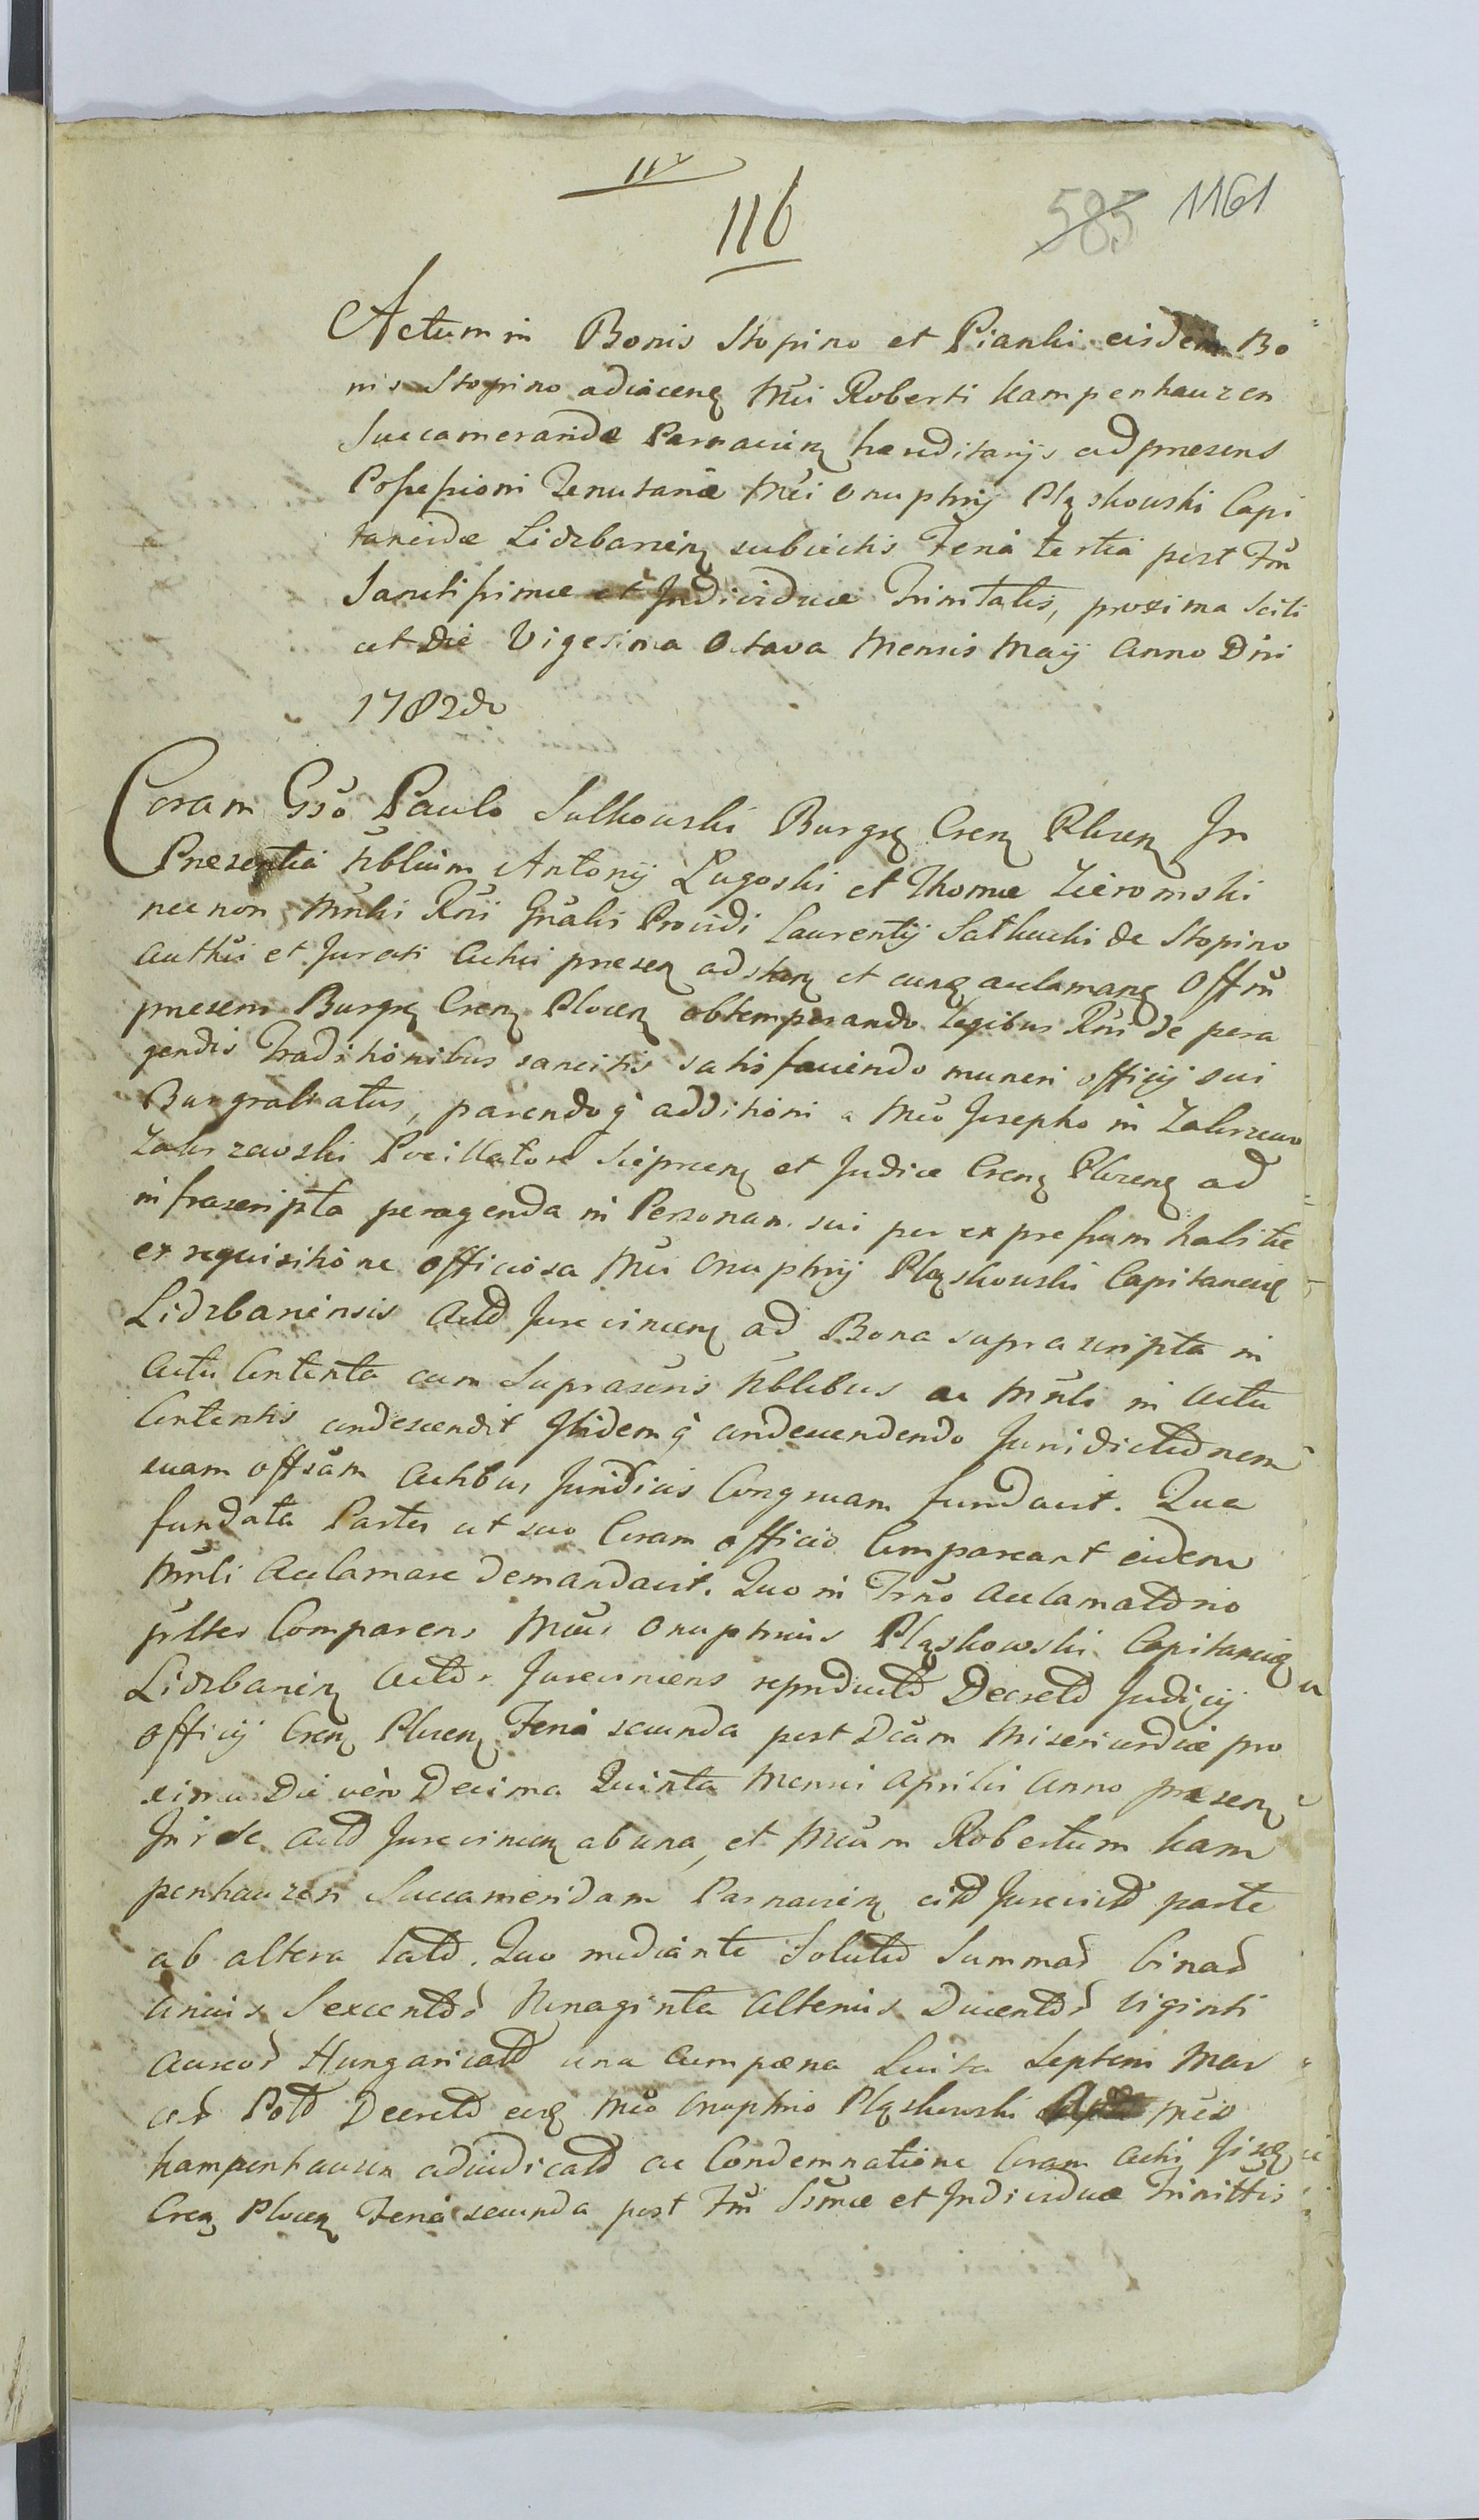 11v
116
585 1161
Actum in Bonis Stopino et Pianki eisdem Bo
nis Stopino adiacenꝫ Mci Roberti Kampenhauzen
Succameranidæ Parnavienꝫ hæreditarijs ad præsens
Possessioni Tenutariæ Mci Onuphrij Pląskowski Capi
taneidæ Lidzbarienꝫ subiectis Feria tertia post Ftũ
Sanctissimæ et Individuæ Trinitatis, proxima scili
cet Die Vigesima Octava Mensis Maij Anno Dni
1782do
Coram Gsõ Paulo Sulkowski Burgꝫ Crenꝫ Plocenꝫ In
Præsentia Nblium Antonij Lugoski et Thomæ Zieromski
nec non Mnli Rñi Gñalis Providi Laurentij Sathucki de Stopino
authci et Jurati Actui præsenꝫ adstanꝫ et eunꝫ acclamanꝫ Offm̃
præsens Burgꝫ Crenꝫ Plocenꝫ obtemperando Legibus Rñi de pera
gendis Traditionibus sancitis satisfaciendo muneri officij sui
Burgrabiatus, parendoq̃ additioni a Mco Josepho in Zakrzewo
Zakrzewski Pocillatore Sieprcenꝫ et Judice Crenꝫ Plocenꝫ ad
infrascripta peragenda in Personam sui per expressum habitæ
ex requisitione Officiosa Mci Onuphrij Pląskowski Capitaneidæ
Lidzbariensis Actd Jurevincenꝫ ad Bona suprascripta in
Actu Contenta cum Suprascris Nblibus ac Mnli in actu
Contentis condescendit Ibidemq̃ condescendendo Jurisdictionem
suam offsam Actibus Juridicis Congruam fundavit. Qua
fundata Partes ut suo Coram Officio Compareant eidem
Mnli Acclamare demandavit. Quo in Trno Acclamatorio
psltes Comparens Mcus Onuphrius Pląskowski Capitaneidꝫ
Lidzbarienꝫ Actor Jurevincens reproducto Decreto Judicij
officij Crenꝫ Plocenꝫ Feria secunda post Dcam Misericordiæ pro
xima Die vero Decima Quinta Mensis Aprilis Anno præsenꝫ
Inr se Actd Jurevincenꝫ ab una, et Mcum Robertum Kam
penhauzen Succameridam Parnavienꝫ citd Jurevictd parte
ab altera latd. Quo mediante Solutd Summad binad
unius Sexcentod Nonaginta Alterius Ducentod Viginti
Aureod Hungaricald una cum pœna Luita Septem Mar
card Pold Decretd eiꝫ Mco Onuphrio Pląskowski Mcd
Kampenhausen adiudicatd ac Condemnatione Coram Actis
Crenꝫ Plocenꝫ Feria secunda post Ftũ Ssmæ et Individuæ Trinittis